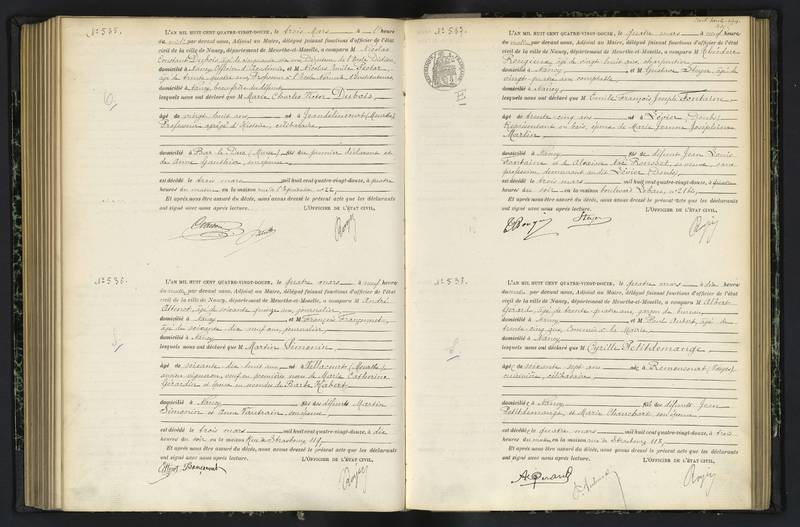 N° 535.
L'AN MIL HUIT CENT QUATRE-VINGT-DOUZE, le trois Mars à heure
du par devant nous, Adjoint au Maire, délégué faisant fonctions d'officier de l'état
civil de la ville de Nancy, département de Meurthe-et-Moselle, a comparu M Nicolas
Constant Dubois, âgé de
domicilié à Nancy, et Nicolas Emile
âgé de trente quatre ans, Professeur à l'École Normale
domicilié à Nancy, beau-frère du défunt
lesquels nous ont déclaré que M Marie Charles Victor Dubois,
âgé de vingt huit ans né à Jeandelincourt (Meurthe)
Professeur agrégé d'Histoire, célibataire,
domicilié à Bar le Duc (Meuse), fils du premier déclarant et
de Anne Gauthier son épouse
est décédé le trois mars mil huit cent quatre-vingt-douze, à quatre
heures du matin en la maison rue n° 22,
Et après nous être assuré du décès, nous avons dressé le présent acte que les déclarants
ont signé avec nous après lecture. L'OFFICIER DE L'ÉTAT CIVIL,
N° 536.
L'AN MIL HUIT CENT QUATRE-VINGT-DOUZE, le quatre mars à neuf heure
du matin, par devant nous, Adjoint au Maire, délégué faisant fonctions d'officier de l'état
civil de la ville de Nancy, département de Meurthe-et-Moselle, a comparu M André
âgé de soixante quinze ans, journalier
domicilié à Nancy et M François
âgé de soixante dix neuf ans, journalier
domicilié à Nancy
lesquels nous ont déclaré que M Martin Simonin
âgé de soixante dix huit ans né à (Meurthe)
ancien vigneron, veuf en première noces de Marie Catherine
Gérardin et époux en secondes de Barbe Habert
domicilié à Nancy fils des défunts Martin
Simonin et Anne Vautrain son épouse
est décédé le trois mars mil huit cent quatre-vingt-douze, à dix
heures du soir en la maison Rue de Strasbourg 119,
Et après nous être assuré du décès, nous avons dressé le présent acte que les déclarants
ont signé avec nous après lecture. L'OFFICIER DE L'ÉTAT CIVIL,
N° 537.
L'AN MIL HUIT CENT QUATRE-VINGT-DOUZE, le quatre mars à neuf heure
du matin, par devant nous, Adjoint au Maire, délégué faisant fonctions d'officier de l'état
civil de la ville de Nancy, département de Meurthe-et-Moselle, a comparu M
âgé de vingt huit ans, charpentier
domicilié à Nancy et M Gustave âgé de
vingt quatre ans comptable
domicilié à Nancy,
lesquels nous ont déclaré que M Emile François Joseph Fontaine,
âgé de trente cinq ans né à Levier (Doubs)
Représentant en bois, époux de Marie Jeanne Joséphine
Martin
domicilié à Nancy fils de défunt Jean Louis
Fontaine et de sa veuve, sans
profession demeurant audit Levier (Doubs),
est décédé le trois mars mil huit cent quatre-vingt-douze, à
heures du soir en la maison boulevard Lobau, n° 21
Et après nous être assuré du décès, nous avons dressé le présent acte que les déclarants
ont signé avec nous après lecture. L'OFFICIER DE L'ÉTAT CIVIL,
N° 538.
L'AN MIL HUIT CENT QUATRE-VINGT-DOUZE, le quatre mars à dix heure
du matin, par devant nous, Adjoint au Maire, délégué faisant fonctions d'officier de l'état
civil de la ville de Nancy, département de Meurthe-et-Moselle, a comparu M Albert
Gérard, âgé de trente quatre ans, garçon de bureau
domicilié à Nancy et M Paul Aubert, âgé de
trente cinq ans, Commis à la Mairie,
domicilié à Nancy
lesquels nous ont déclaré que M Cyrille Petitdemange,
âgé de soixante sept ans né à Remomont (Vosges)
cuisinière, célibataire,
domicilié à Nancy fille des défunts Jean
Petitdemange et Marie Blanchard son épouse
est décédé le quatre mars mil huit cent quatre-vingt-douze, à trois
heures du matin en la maison rue de Strasbourg 118,
Et après nous être assuré du décès, nous avons dressé le présent acte que les déclarants
ont signé avec nous après lecture. L'OFFICIER DE L'ÉTAT CIVIL,
A. Gérard